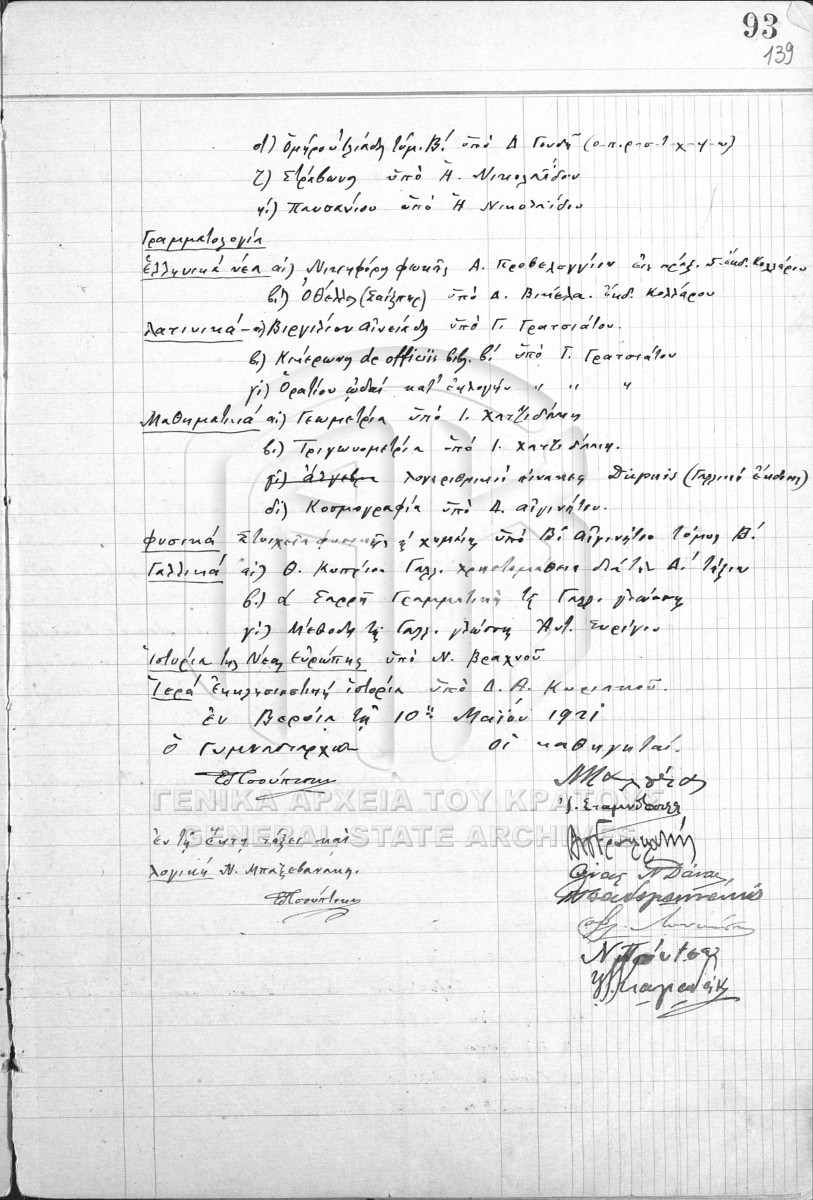 93
139
στ) Ὁμήρου Ἰλιάδος τόμ. Β΄. ὑπὸ Δ Γουδῆ (ο-π-ρ-σ-τ-χ-ψ-ω)
ζ) Στράβωνος ὑπὸ Ἠ. Νικολαΐδου
η΄) Παυσανίου ὑπὸ Ἠ Νικολαΐδου
Γραμματολογία
Ἑλληνικά νέα α΄) Νικηφόρος Φωκᾶς Α. Προβελεγγίου εἰς πράξ. 5. ἐκδ. Κολλάρου
β΄) Ὀθέλλος (Σαίξπηρ) ὑπὸ Δ. Βικέλα. ἐκδ. Κολλάρου
Λατινικά - α) Βιργιλίου Αἰνειάδος ὑπὸ Γ. Γρατσιάτου.
β) Κικέρωνος de officiis βιβ. β΄. ὑπὸ Γ. Γρατσιάτου
γ΄) Ὁρατίου ᾠδαί κατ' ἐκλογήν " " "
Μαθηματικά α΄) Γεωμετρία ὑπὸ Ι. Χατζιδάκη
β΄) Τριγωνομετρία ὑπὸ Ι. Χατζιδάκη.
γ΄) Ἄλγεβρα λογαριθμικοί πίνακες Dupuis (Γαλλική ἔκδοσις)
δ΄) Κοσμογραφία ὑπὸ Δ. Αἰγινήτου.
Φυσικά Στοιχεῖα φυσικῆς ὑπὸ Β. Αἰγινήτου τόμος Β΄.
Γαλλικά α΄) Θ. Κυπρίου Γαλλ. Χρηστομάθεια διὰ τὴν Δ΄. τάξιν
β΄) Σαρρῆ Γραμματική τῆς Γαλλ. γλώσσης
γ΄) Μέθοδος τῆς Γαλλ. γλώσσης Ἀντ. Συρίγου
Ἱστορία τῆς Νέας Εὐρώπης ὑπὸ Ν. Βραχνοῦ
Ἱερά Ἐκκλησιαστική ἱστορία ὑπὸ Δ. Α. Κυριακοῦ.
ἐν Βεροίᾳ τῇ 10ῃ Μαΐου 1921
Ὁ Γυμνασιάρχης Οἱ καθηγηταί.
Ν Πρόντσας
ἐν τῇ ἕκτῃ τάξει καὶ
λογική Ν. Μπαξεβανάκη.
ΓΕΝΙΚΑ ΑΡΧΕΙΑ ΤΟΥ ΚΡΑΤΟΥΣ
GENERAL STATE ARCHIVES